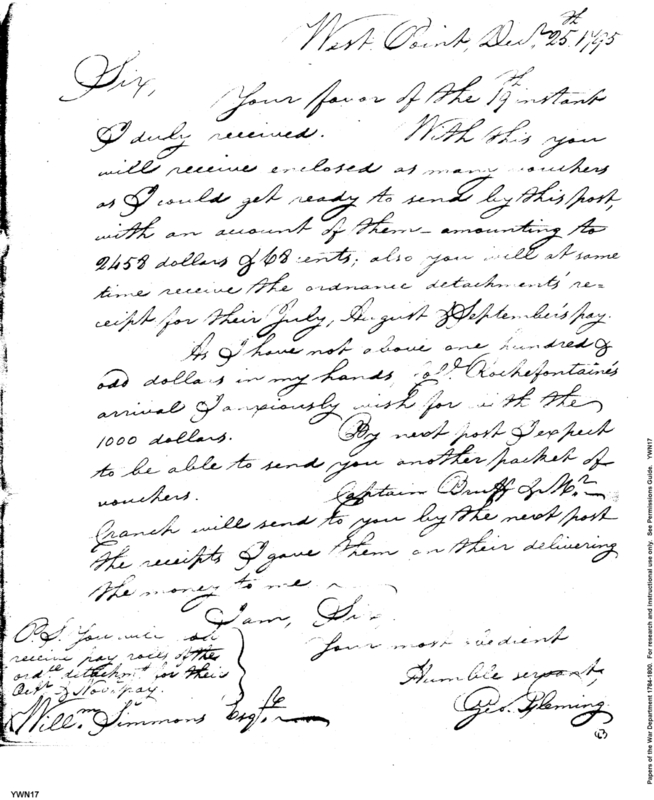 West Point, Decr. 25th. 1795
Sir,
Your favor of the 19th instant
I duly received. With this you
will receive enclosed as many vouchers
as I could get ready to send by this post,
with an account of them – amounting to
2458 dollars & 68 cents; also you will at same
time receive the ordnance detachments' re=
ceipt for their July, August & September's pay.
As I have not above one hundred &
odd dollars in my hands, Coll. Rochefontaine's
arrival I anxiously wish for with the
1000 dollars. By next post I expect
to be able to send you another packet of
vouchers. Captain Bruff & Mr.
Cranch will send to you by the next post
the receipts I gave them on their delivering
the money to me
I am, Sir
Your most obedient
Humble servant,
Geo. Fleming
P.S. You will
receive pay rolls of the
ordce. detachmt. for their
Octr. & Novr. pay.
Willm. Simmons Esqr.
YWN17
Papers of the War Department 1784-1800. For research and instructional use only. See Permissions Guide. YWN17